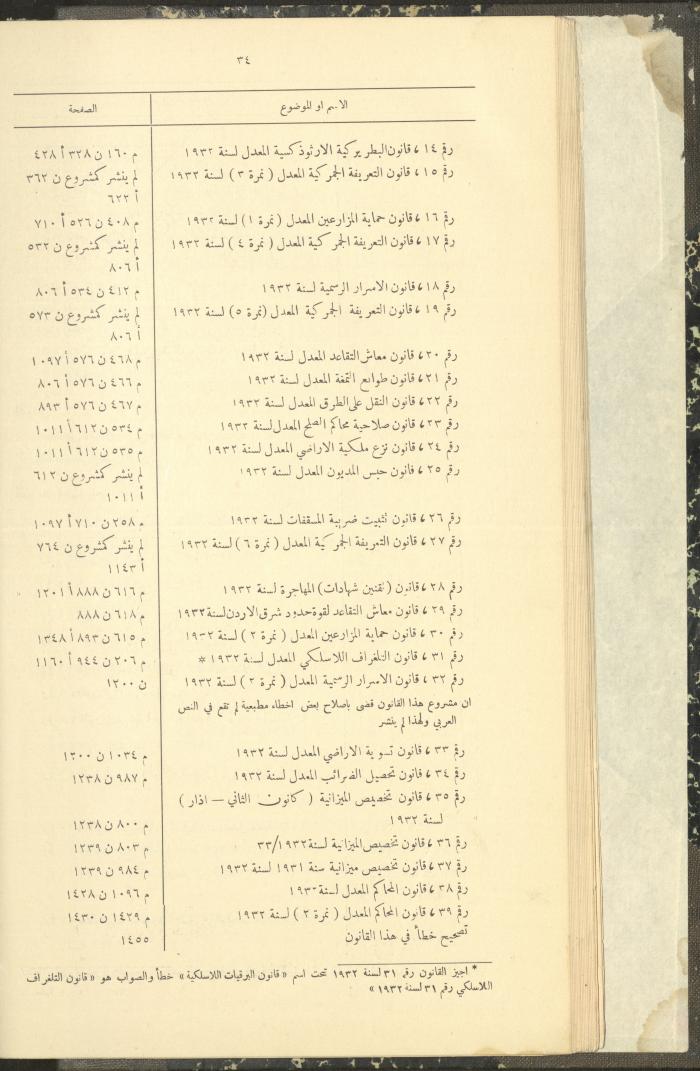 ٣٤
الاسم او الموضوع الصفحة
رقم ١٤، قانون البطريركية الارثوذكسية المعدل لسنة ١٩٣٢ م ١٦٠ ن ٣٢٨ أ ٤٢٨
رقم ١٥، قانون التعريفة الجمركية المعدل ( نمرة ٣ ) لسنة ١٩٣٢ لم ينشر كمشروع ن ٣٦٢
أ ٦٢٢
رقم ١٦، قانون حماية المزارعين المعدل ( نمرة ١ ) لسنة ١٩٣٢ م ٤٠٨ ن ٥٢٦ أ ٧١٠
رقم ١٧، قانون التعريفة الجمركية المعدل ( نمرة ٤ ) لسنة ١٩٣٢ لم ينشر كمشروع ن ٥٣٢
أ ٨٠٦
رقم ١٨، قانون الاسرار الرسمية لسنة ١٩٣٢ م ٤١٢ ن ٥٣٤ أ ٨٠٦
رقم ١٩، قانون التعريفة الجمركية المعدل (نمرة ٥) لسنة ١٩٣٢ لم ينشر كمشروع ن ٥٧٣
أ ٨٠٦
رقم ٢٠، قانون معاش التقاعد المعدل لسنة ١٩٣٢ م ٤٦٨ ن ٥٧٦ أ ١٠٩٧
رقم ٢١، قانون طوابع التمغة المعدل لسنة ١٩٣٢ م ٤٦٦ ن ٥٧٦ أ ٨٠٦
رقم ٢٢، قانون النقل على الطرق المعدل لسنة ١٩٣٢ م ٤٦٧ ن ٥٧٦ أ ٨٩٣
رقم ٢٣، قانون صلاحية محاكم الصلح المعدل لسنة ١٩٣٢ م ٥٣٤ ن ٦١٢ أ ١٠١١
رقم ٢٤، قانون نزع ملكية الاراضي المعدل لسنة ١٩٣٢ م ٥٣٥ ن ٦١٢ أ ١٠١١
رقم ٢٥، قانون حبس المديون المعدل لسنة ١٩٣٢ لم ينشر كمشروع ن ٦١٢
أ ١٠١١
رقم ٢٦، قانون تثبيت ضريبة المسقفات لسنة ١٩٣٢ م ٢٥٨ ن ٧١٠ أ ١٠٩٧
رقم ٢٧، قانون التعريفة الجمركية المعدل ( نمرة ٦ ) لسنة ١٩٣٢ لم ينشر كمشروع ن ٧٦٤
أ ١١٤٣
رقم ٢٨، قانون (تقنين شهادات) المهاجرة لسنة ١٩٣٢ م ٦١٦ ن ٨٨٨ أ ١٢٠١
رقم ٢٩، قانون معاش التقاعد لقوة حدود شرق الاردن لسنة ١٩٣٢ م ٦١٨ ن ٨٨٨
رقم ٣٠، قانون حماية المزارعين المعدل ( نمرة ٢ ) لسنة ١٩٣٢ م ٦١٥ ن ٨٩٣ أ ١٣٤٨
رقم ٣١، قانون التلغراف اللاسلكي المعدل لسنة ١٩٣٢ * م ٢٠٦ ن ٩٤٤ أ ١١٦٠
رقم ٣٢، قانون الاسرار الرسمية المعدل ( نمرة ٢ ) لسنة ١٩٣٢ ن ١٢٠٠
ان مشروع هذا القانون قضى باصلاح بعض اخطاء مطبعية لم تقع في النص
العربي ولهذا لم ينشر
رقم ٣٣، قانون تسوية الاراضي المعدل لسنة ١٩٣٢ م ١٠٣٤ ن ١٢٠٠
رقم ٣٤، قانون تحصيل الضرائب المعدل لسنة ١٩٣٢ م ٩٨٧ ن ١٢٣٨
رقم ٣٥، قانون تخصيص الميزانية ( كانون الثاني — اذار )
لسنة ١٩٣٢ م ٨٠٠ ن ١٢٣٨
رقم ٣٦، قانون تخصيص الميزانية لسنة ٣٣/١٩٣٢ م ٨٠٣ ن ١٢٣٩
رقم ٣٧، قانون تخصيص ميزانية سنة ١٩٣١ لسنة ١٩٣٢ م ٩٨٤ ن ١٢٣٩
رقم ٣٨، قانون المحاكم المعدل لسنة ١٩٣٢ م ١٠٩٦ ن ١٤٢٨
رقم ٣٩، قانون المحاكم المعدل ( نمرة ٢ ) لسنة ١٩٣٢ م ١٤٢٩ ن ١٤٣٠
تصحيح خطأ في هذا القانون ١٤٥٥
* اجيز القانون رقم ٣١ لسنة ١٩٣٢ تحت اسم « قانون البرقيات اللاسلكية » خطأ والصواب هو « قانون التلغراف
اللاسلكي رقم ٣١ لسنة ١٩٣٢ »